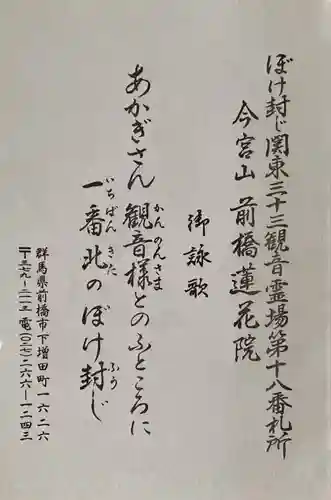 ぼけ封じ関東三十三観音霊場第十八番札所
今宮山 前橋蓮花院
御詠歌
あかぎさん 観音様とのふところに
かんのんさま
一番北のぼけ封じ
いちばん きた ふう
群馬県前橋市下増田町一六二六
〒三七九-二一一三 電(〇二七)二六六-一二四三